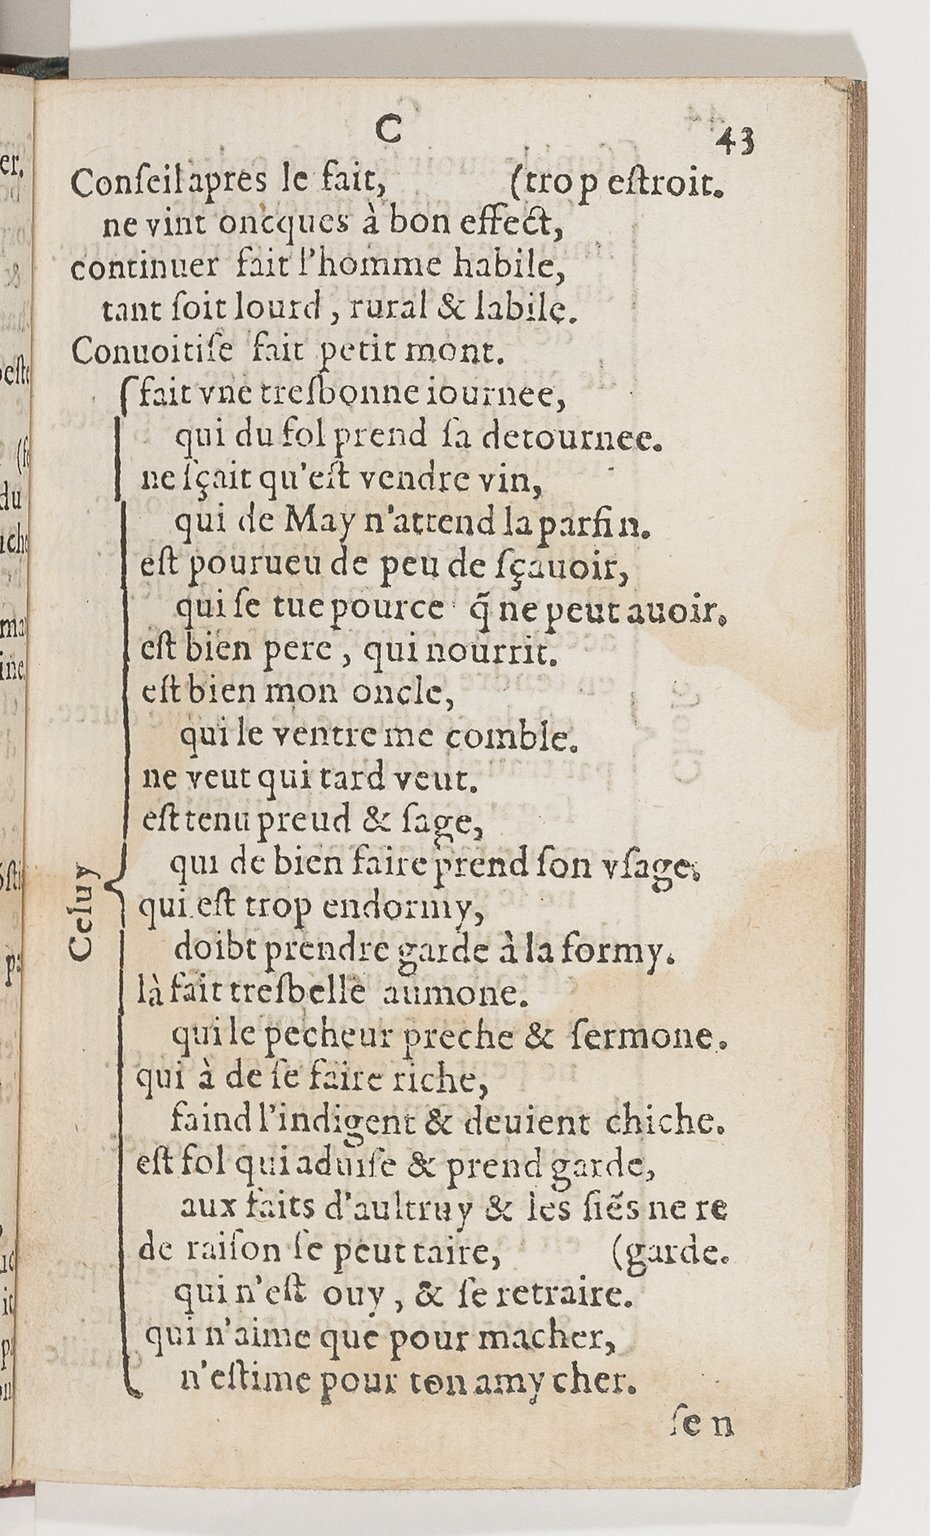 C
43
Conſeil apres le fait, (trop eſtroit.
ne vint oncques à bon effect,
continuer fait l'homme habile,
tant ſoit lourd, rural & labile.
Conuoitiſe fait petit mont.
Celuy
fait vne treſbonne iournee,
qui du fol prend ſa detournee.
ne ſçait qu'eſt vendre vin,
qui de May n'attend la parfin.
eſt pourueu de peu de ſçauoir,
qui ſe tue pource q̃ ne peut auoir.
eſt bien pere, qui nourrit.
eſt bien mon oncle,
qui le ventre me comble.
ne veut qui tard veut.
eſt tenu preud & ſage,
qui de bien faire prend ſon vſage.
qui eſt trop endormy,
doibt prendre garde à la formy.
là fait treſbelle aumone.
qui le pecheur preche & ſermone.
qui à de ſe faire riche,
faind l'indigent & deuient chiche.
eſt fol qui aduiſe & prend garde,
aux faits d'aultruy & les ſiẽs ne re
de raiſon ſe peut taire, (garde.
qui n'eſt ouy, & ſe retraire.
qui n'aime que pour macher,
n'eſtime pour ton amy cher.
ſen